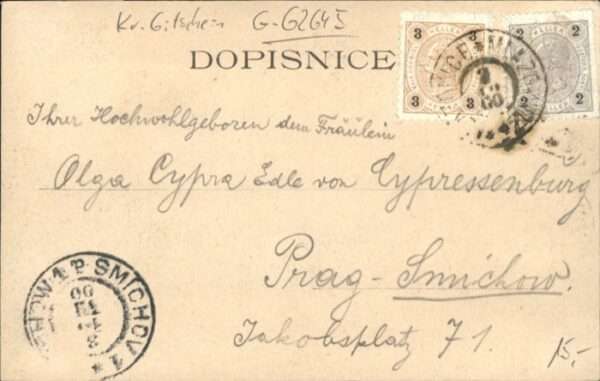 Kr. Gitschin G-G2645
DOPISNICE
3 3 3 3
2 2 2 2
Ihrer Hochwohlgeboren dem Fräulein
Olga Cypra Edle von Cypressenburg
Prag-Smichow.
Jakobsplatz 71.
SMICHOV 1
15,-